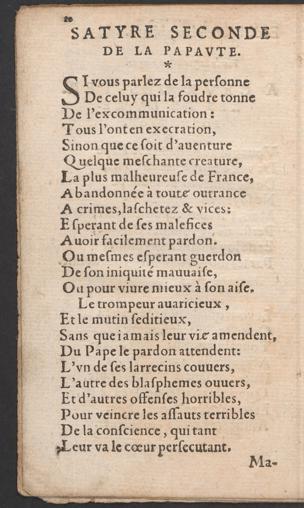 20
SATYRE SECONDE
DE LA PAPAVTE.
*
SI vous parlez de la personne
De celuy qui la foudre tonne
De l'excommunication :
Tous l'ont en execration,
Sinon que ce soit d'auenture
Quelque meschante creature,
La plus malheureuse de France,
Abandonnée à toute outrance
A crimes, laschetez & vices:
Esperant de ses malefices
Auoir facilement pardon.
Ou mesmes esperant guerdon
De son iniquité mauuaise,
Ou pour viure mieux à son aise.
Le trompeur auaricieux ,
Et le mutin seditieux,
Sans que iamais leur vie amendent,
Du Pape le pardon attendent:
L'vn de ses larrecins couuers,
L'autre des blasphemes ouuers,
Et d'autres offenses horribles,
Pour veincre les assauts terribles
De la conscience , qui tant
Leur va le cœur persecutant.
Ma-